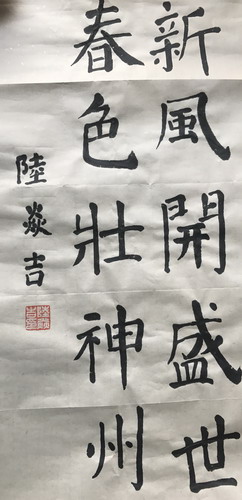 新風開盛世
春色壯神州
陸焱吉